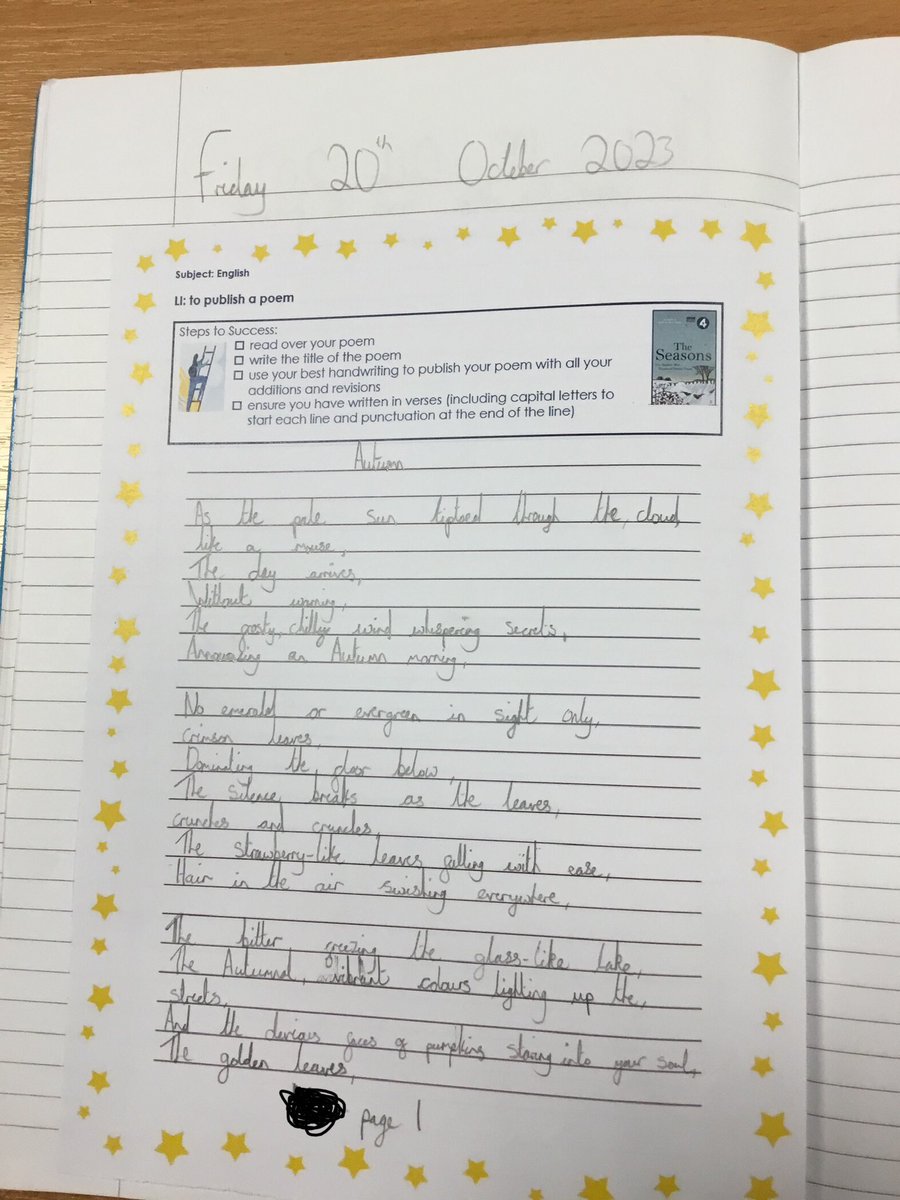 Friday 20th October 2023
Subject: English
LI: to publish a poem
Steps to Success:
read over your poem
write the title of the poem
use your best handwriting to publish your poem with all your
additions and revisions
ensure you have written in verses (including capital letters to
start each line and punctuation at the end of the line)
4
The
Seasons
Autumn
As the pale sun tiptoed through the, cloud,
like a mouse,
The day arrives,
Without warning,
The frosty, chilly wind whispering secrets,
Announcing an Autumn morning,
No emerald or evergreen in sight only,
crimson leaves,
Dominating the floor below,
The silence breaks as the leaves,
crunches and crunches,
The strawberry-like leaves falling with ease,
Hair in the air swishing everywhere,
The bitter, freezing the glass-like lake,
The Autumnal, vibrant colours lighting up the,
streets,
And the devious faces of pumpkins staring into your soul,
The golden leaves,
page 1